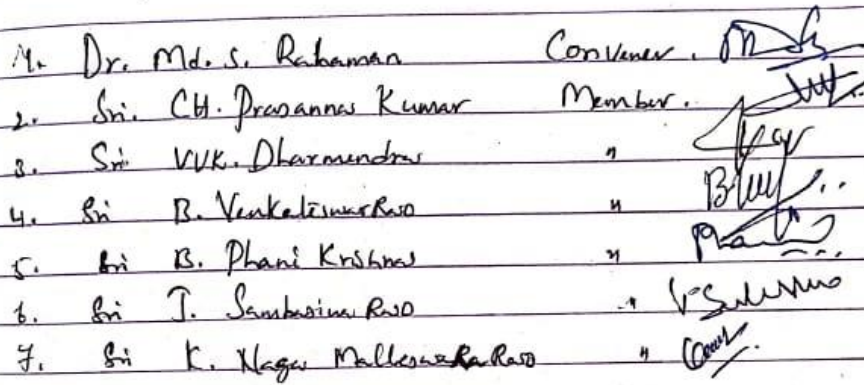 1. Dr. Md. S. Rahaman Convener.
2. Sri. CH. Prasanna Kumar Member.
3. Sri VVK. Dharmendra "
4. Sri B. Venkateswar Rao "
5. Sri B. Phani Krishna "
6. Sri J. Sambasiva Rao "
7. Sri K. Naga MalleswaRa Rao "